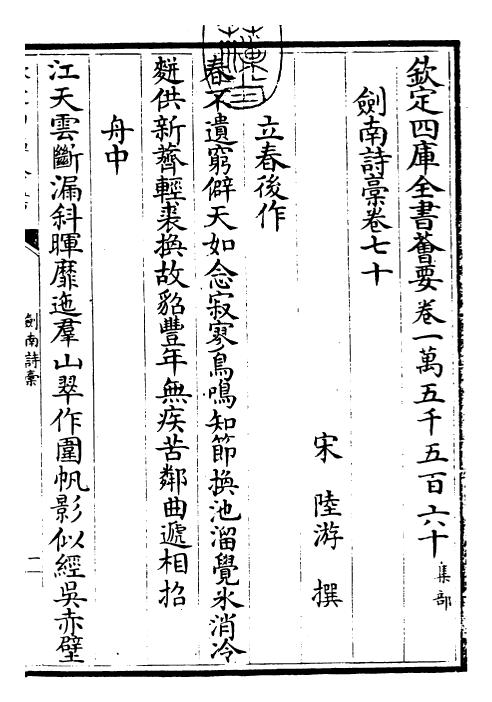 欽定四庫全書薈要卷一萬五千五百六十集部
劍南詩稾卷七十
宋 陸游 撰
立春後作
春不遺窮僻天如念寂寥鳥鳴知節換池溜覺氷消冷
麩供新薺輕裘換故貂豐年無疾苦鄰曲遞相招
舟中
江天雲斷漏斜暉靡迤羣山翠作圍帆影似經吳赤壁
劍南詩稾